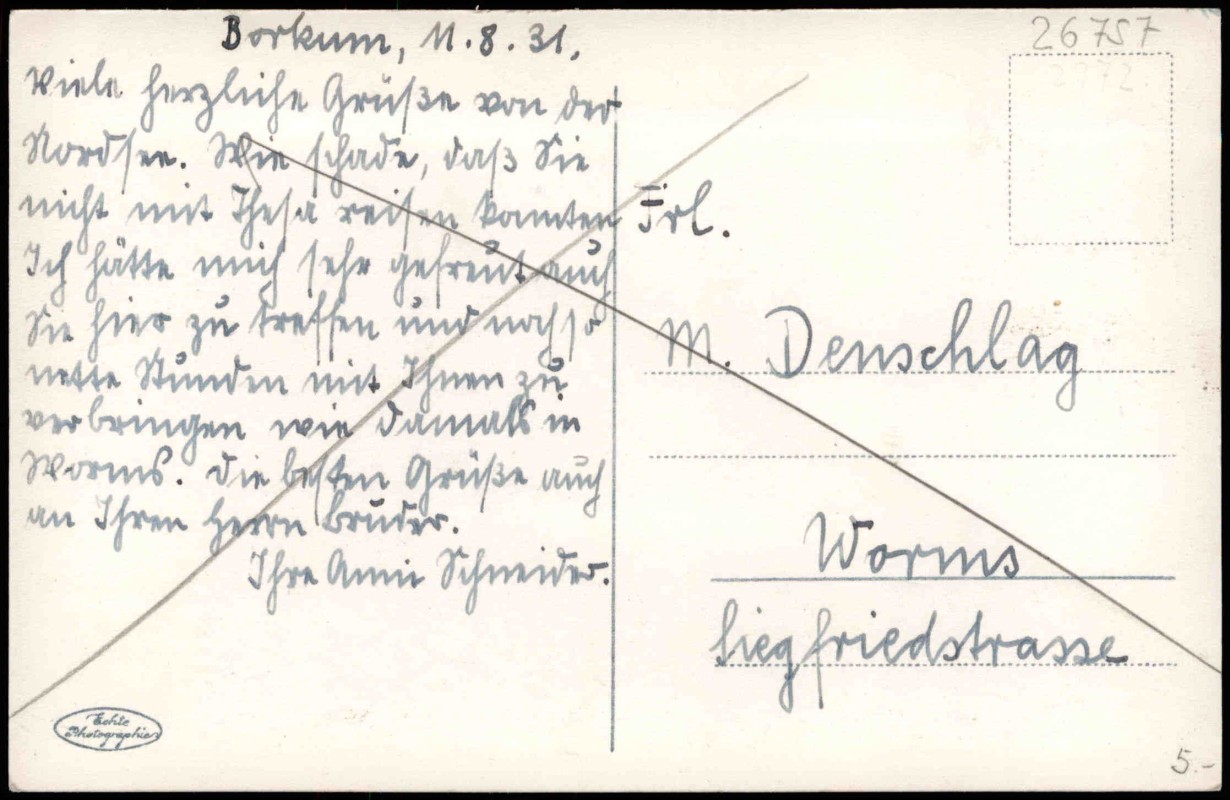 Borkum, 11.8.31,
Viele herzliche Grüße von der
Nordsee. Wie schade, daß Sie
nicht mit Thesa reisen konnten
Ich hätte mich sehr gefreut auch
Sie hier zu treffen und noch so
nette Stunden mit Ihnen zu
verbringen wie damals in
Worms. Die besten Grüße auch
an Ihren Herrn Bruder.
Ihre Anni Schneider.
Echte
Photographie
26757
Frl.
M. Denschlag
Worms
Siegfriedstrasse
5.-